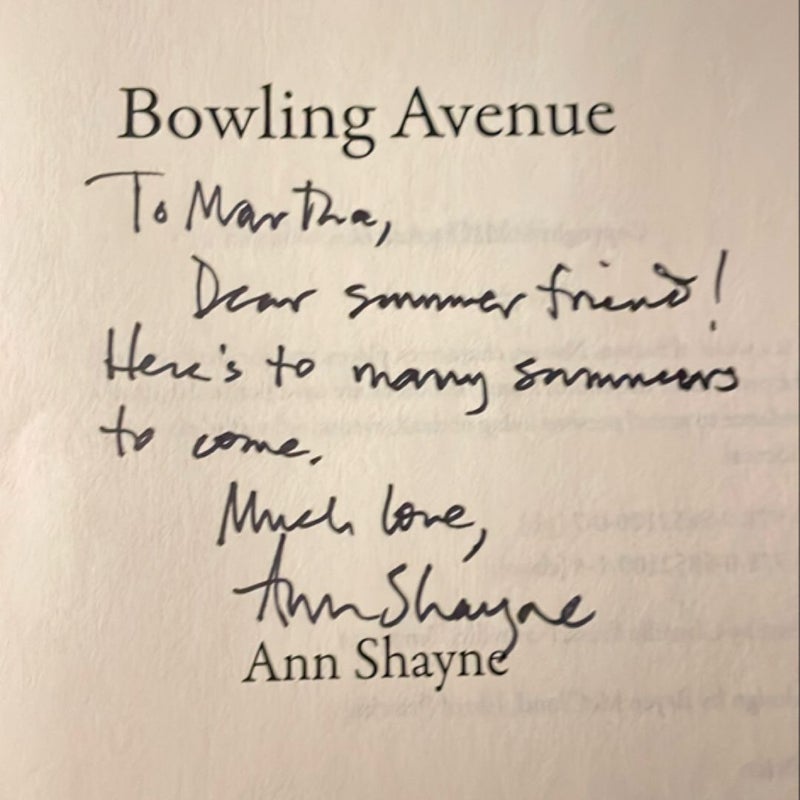 Bowling Avenue
To Martha,
Dear summer friend!
Here's to many summers
to come.
Much love,
Ann Shayne
Ann Shayne